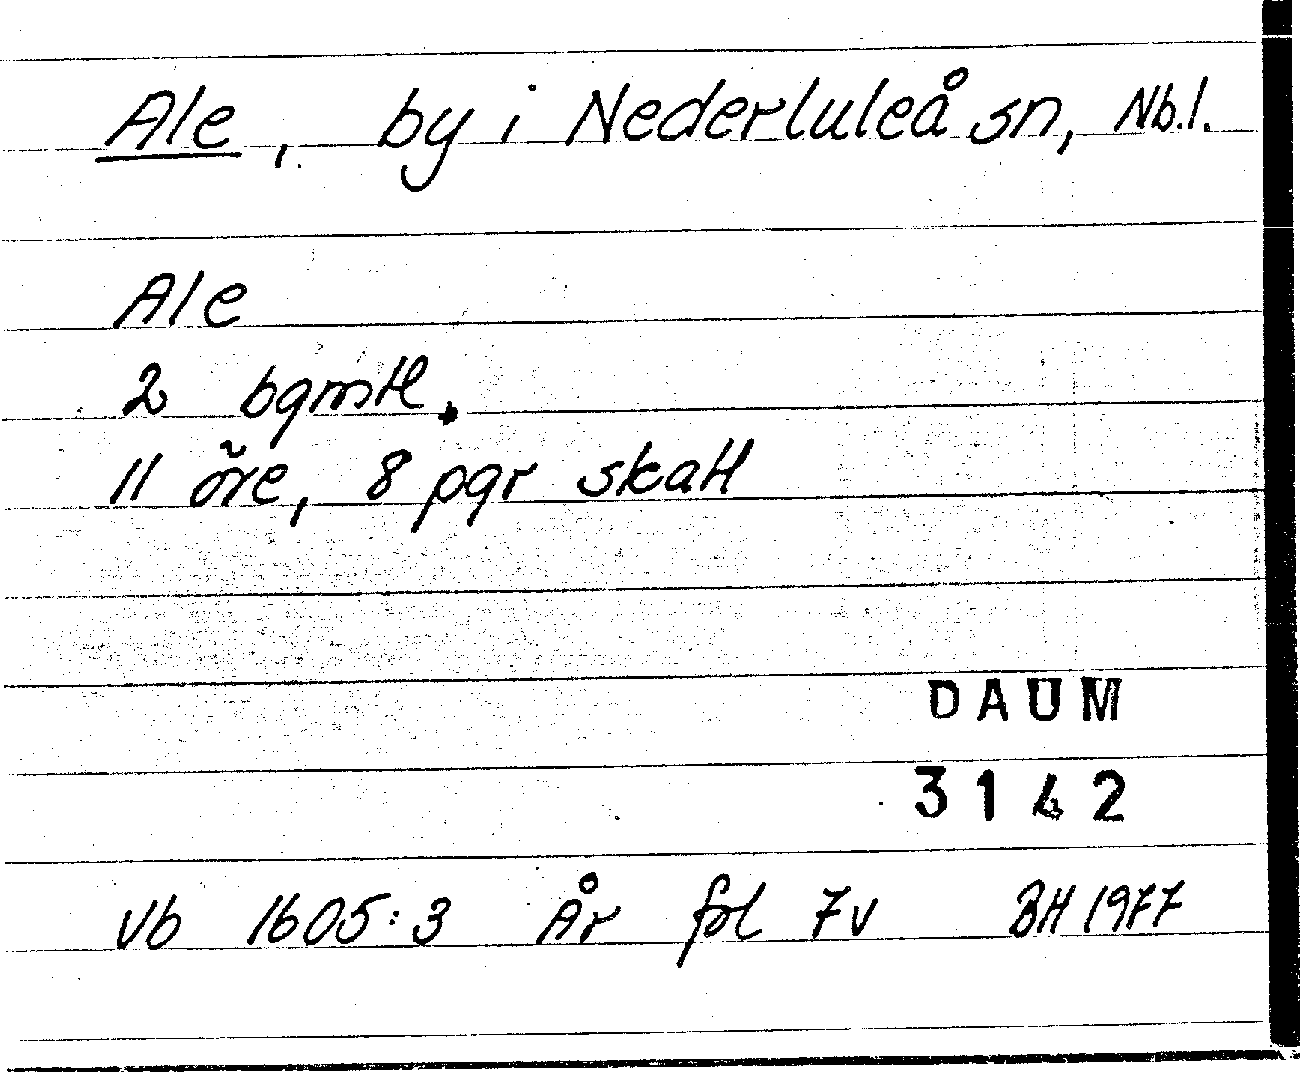 Ale, by i Nederluleå sn, Nb.l.
Ale
2 bgmtl.
11 öre, 8 pgr skatt
DAUM
3142
Vb 1605:3 År fol 7v BH 1977